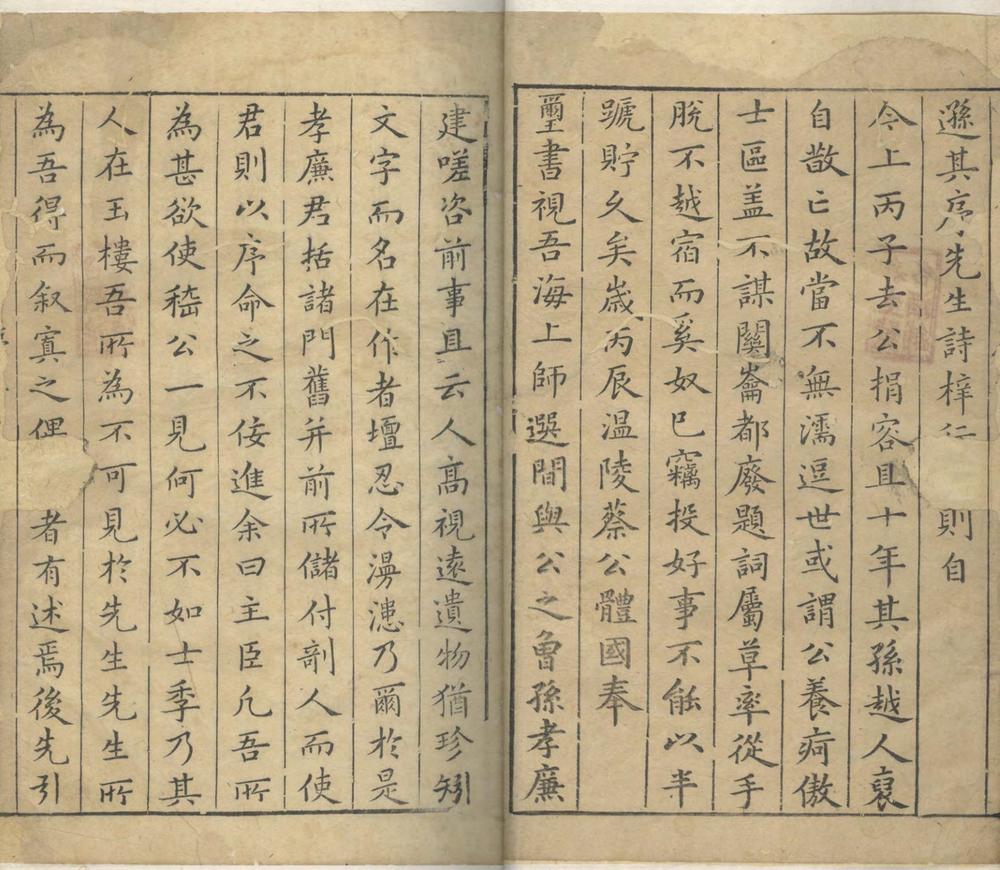 遜其序先生詩梓行則自
今上丙子去公捐容且十年其孫越人裒
自散亡故當不無濡逗世或謂公養疴傲
士區盖不謀闕崙都廢題詞屬草率從手
脫不越宿而奚奴已竊投好事不能以半
號貯久矣歲丙辰温陵蔡公體國奉
璽書視吾海上師選間與公之曾孫孝廉
建嗟咨前事且云人高視遠遺物猶珍矧
文字而名在作者壇忍令漫漶乃爾於是
孝廉君括諸門舊并前所儲付剞人而使
君則以序命之不佞進余曰主臣凡吾所
為甚欲使嵇公一見何必不如士季乃其
人在玉樓吾所為不可見於先生先生所
為吾得而叙寘之俚者有述焉後先引